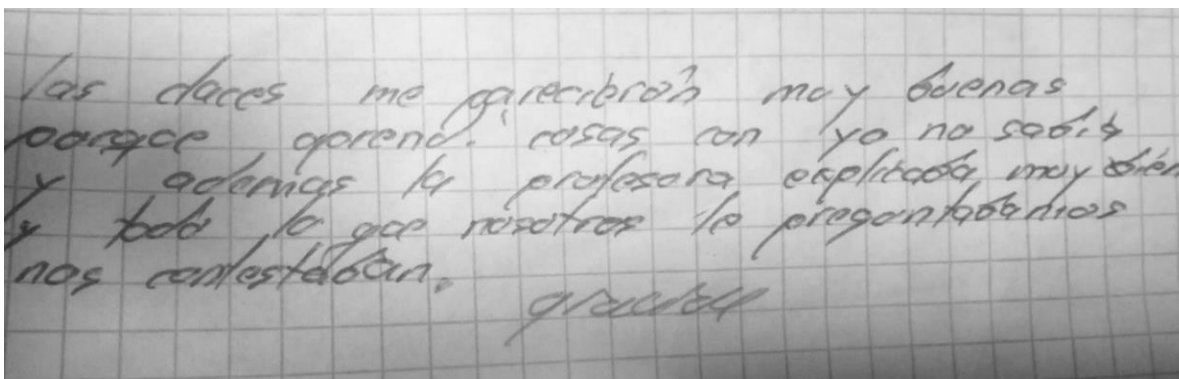 las claces me parecibrón muy buenas
porque aprendi cosas con yo no sabis
y ademas la profesora explicaba muy bien
y todo lo que nosotros le preguntabamos
nos contestaban.
gracias